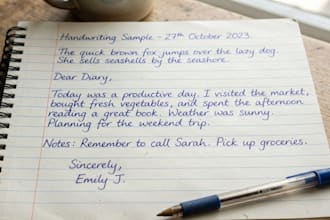 Handwriting Sample - 27th October 2023.
The quick brown fox jumps over the lazy dog.
She sells seashells by the seashore.
Dear Diary,
Today was a productive day. I visited the market,
bought fresh vegetables, and spent the afternoon
reading a great book. Weather was sunny.
Planning for the weekend trip.
Notes: Remember to call Sarah. Pick up groceries.
Sincerely,
Emily J.